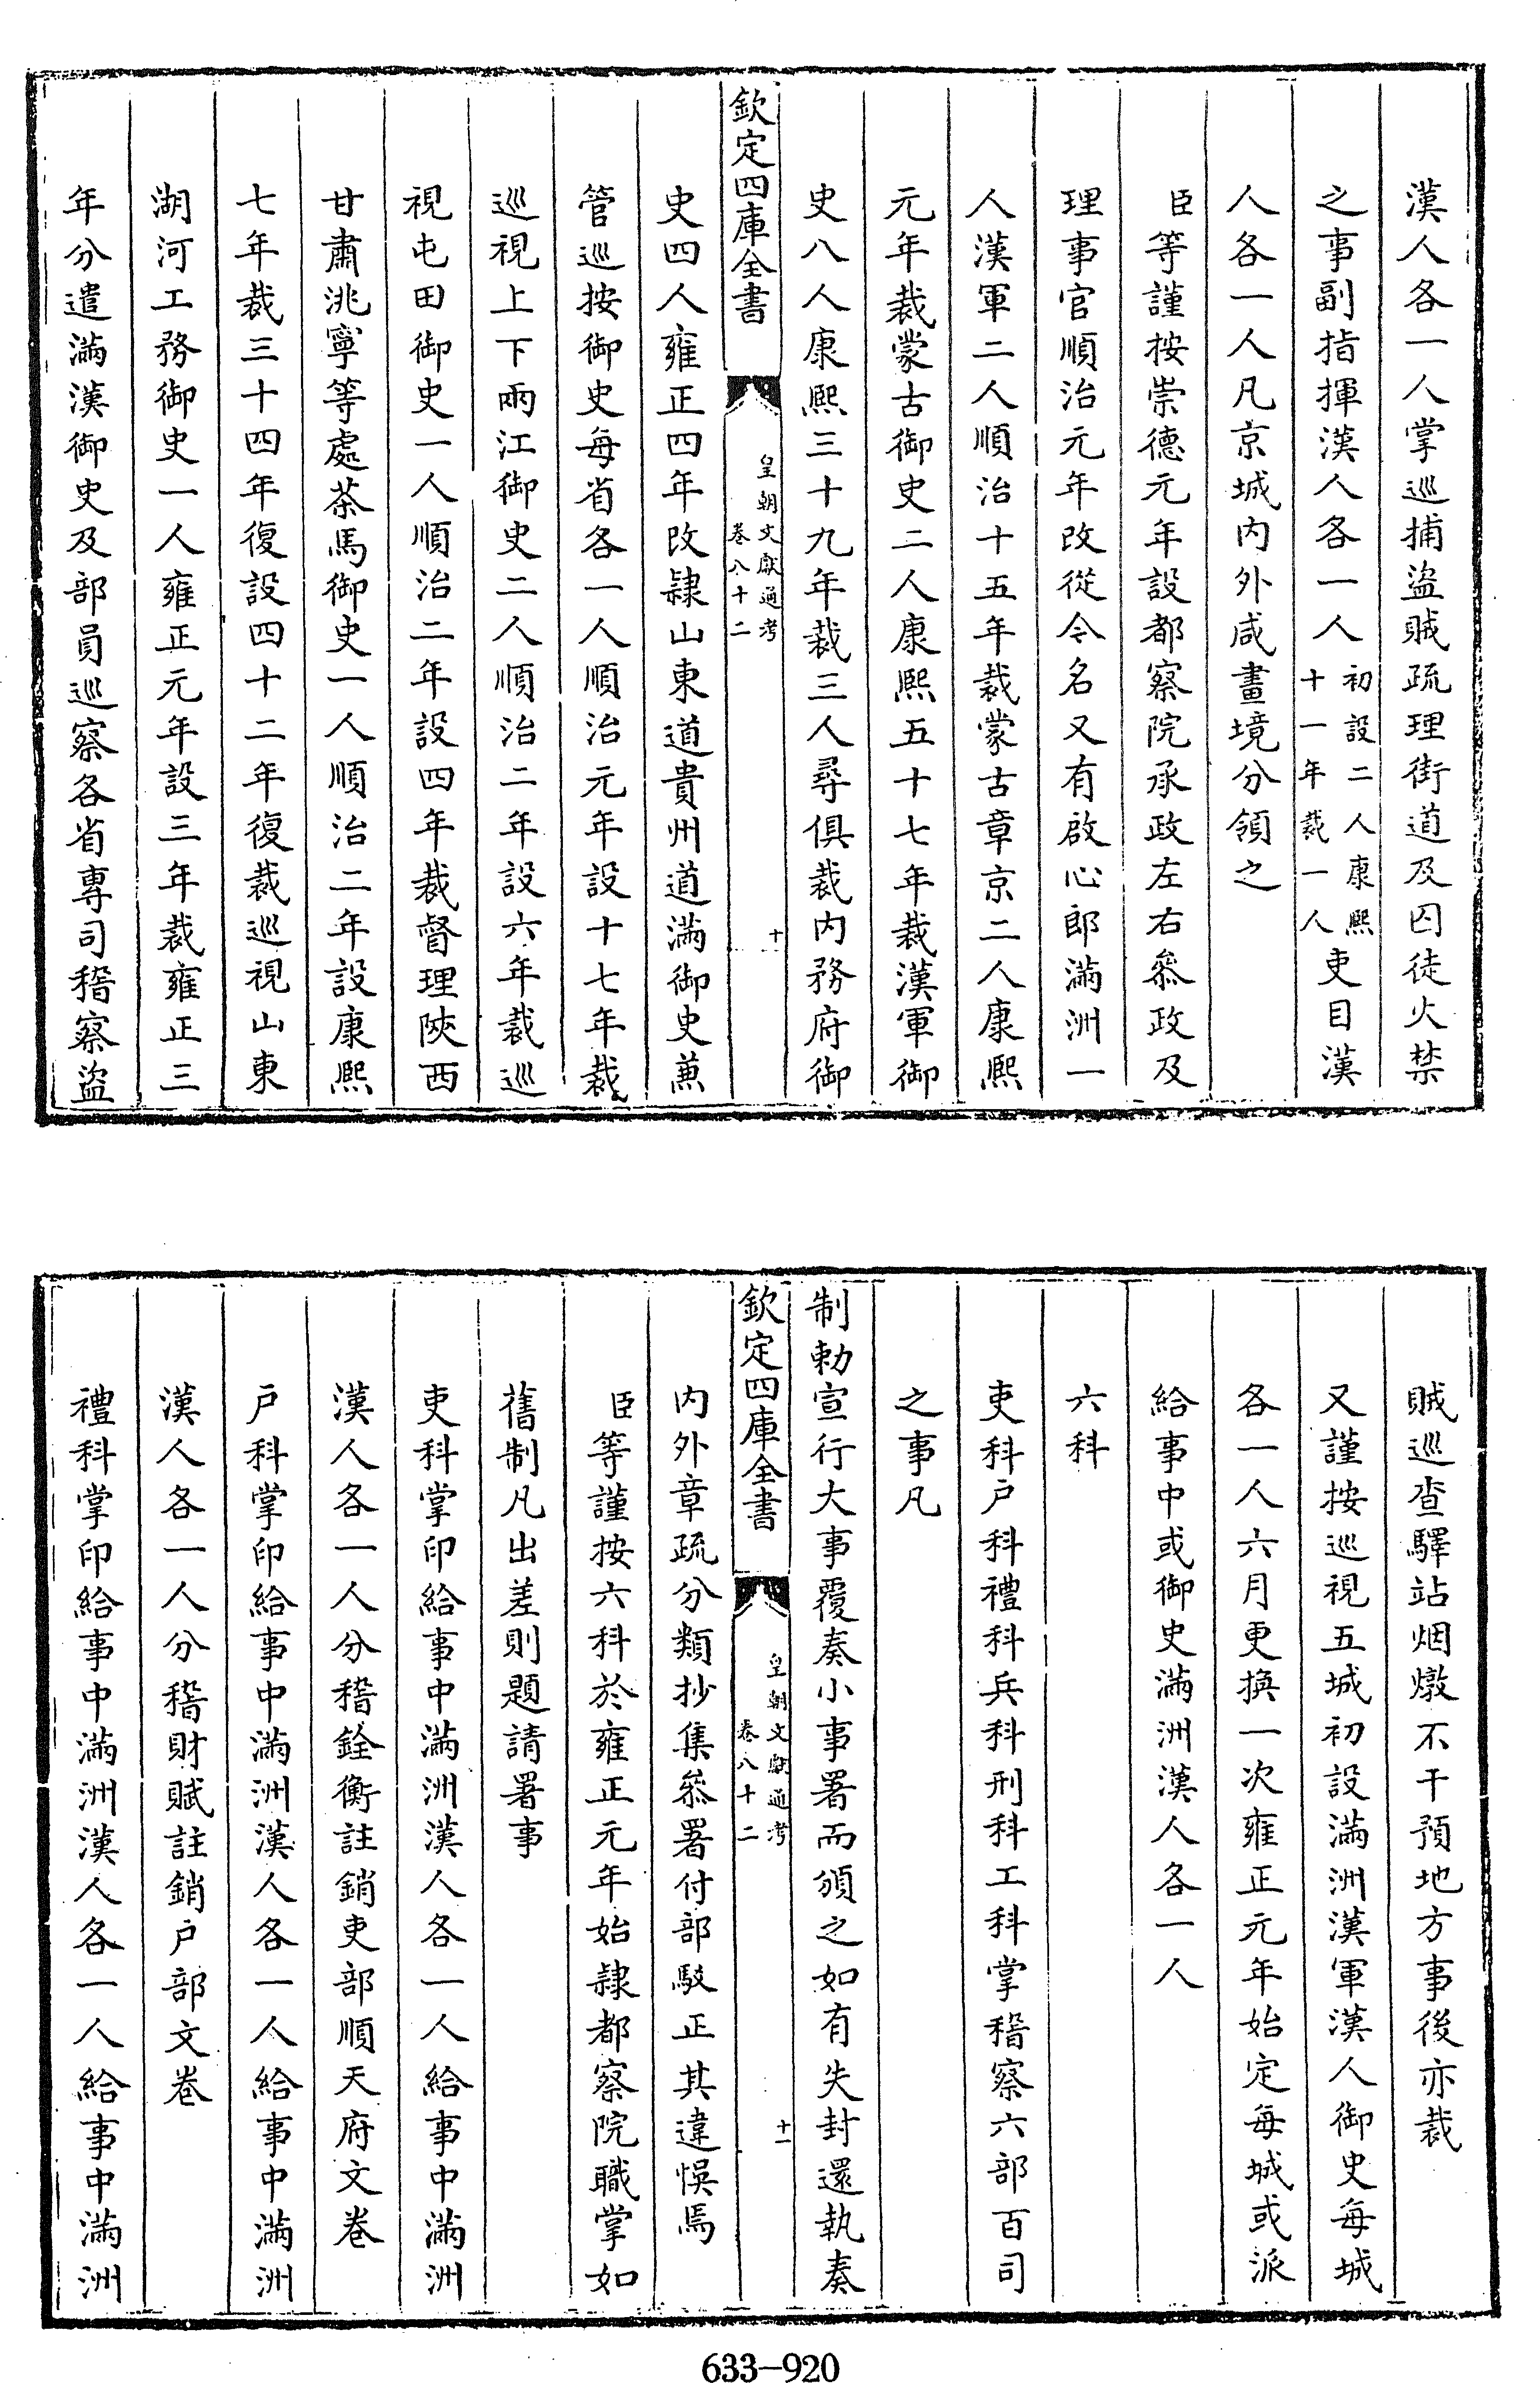 漢人各一人掌巡捕盜賊疏理街道及囚徒火禁
之事副指揮漢人各一人初設二人康熙十一年裁一人吏目漢
人各一人凡京城内外咸畫境分領之
臣等謹按崇德元年設都察院承政左右叅政及
理事官順治元年改從今名又有啟心郎滿洲一
人漢軍二人順治十五年裁蒙古章京二人康熙
元年裁蒙古御史二人康熙五十七年裁漢軍御
史八人康熙三十九年裁三人尋俱裁内務府御
欽定四庫全書
皇朝文獻通考
卷八十二
十
史四人雍正四年改隸山東道貴州道滿御史兼
管巡按御史每省各一人順治元年設十七年裁
巡視上下兩江御史二人順治二年設六年裁巡
視屯田御史一人順治二年設四年裁督理陝西
甘肅洮寧等處茶馬御史一人順治二年設康熙
七年裁三十四年復設四十二年復裁巡視山東
湖河工務御史一人雍正元年設三年裁雍正三
年分遣滿漢御史及部員巡察各省專司稽察盜
賊巡查驛站烟燉不干預地方事後亦裁
又謹按巡視五城初設滿洲漢軍漢人御史每城
各一人六月更換一次雍正元年始定每城或派
給事中或御史滿洲漢人各一人
六科
吏科戶科禮科兵科刑科工科掌稽察六部百司
之事凡
制勅宣行大事覆奏小事署而頒之如有失封還執奏
欽定四庫全書
皇朝文獻通考
卷八十二
十一
内外章疏分類抄集叅署付部駮正其違悞焉
臣等謹按六科於雍正元年始隸都察院職掌如
舊制凡出差則題請署事
吏科掌印給事中滿洲漢人各一人給事中滿洲
漢人各一人分稽銓衡註銷吏部順天府文卷
戶科掌印給事中滿洲漢人各一人給事中滿洲
漢人各一人分稽財賦註銷戶部文卷
禮科掌印給事中滿洲漢人各一人給事中滿洲
633-920